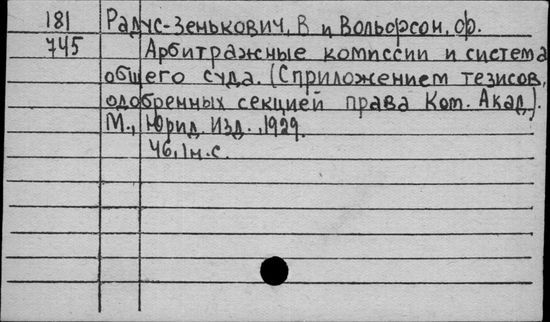 181 Радус-Зенькович, В и Вольфсон, Ф.
745 Арбитражные комиссии и система
общего суда. (С приложением тезисов,
одобренных секцией права Ком. Акад.).
М., Юрид. Изд., 1929.
46, 1 н. с.